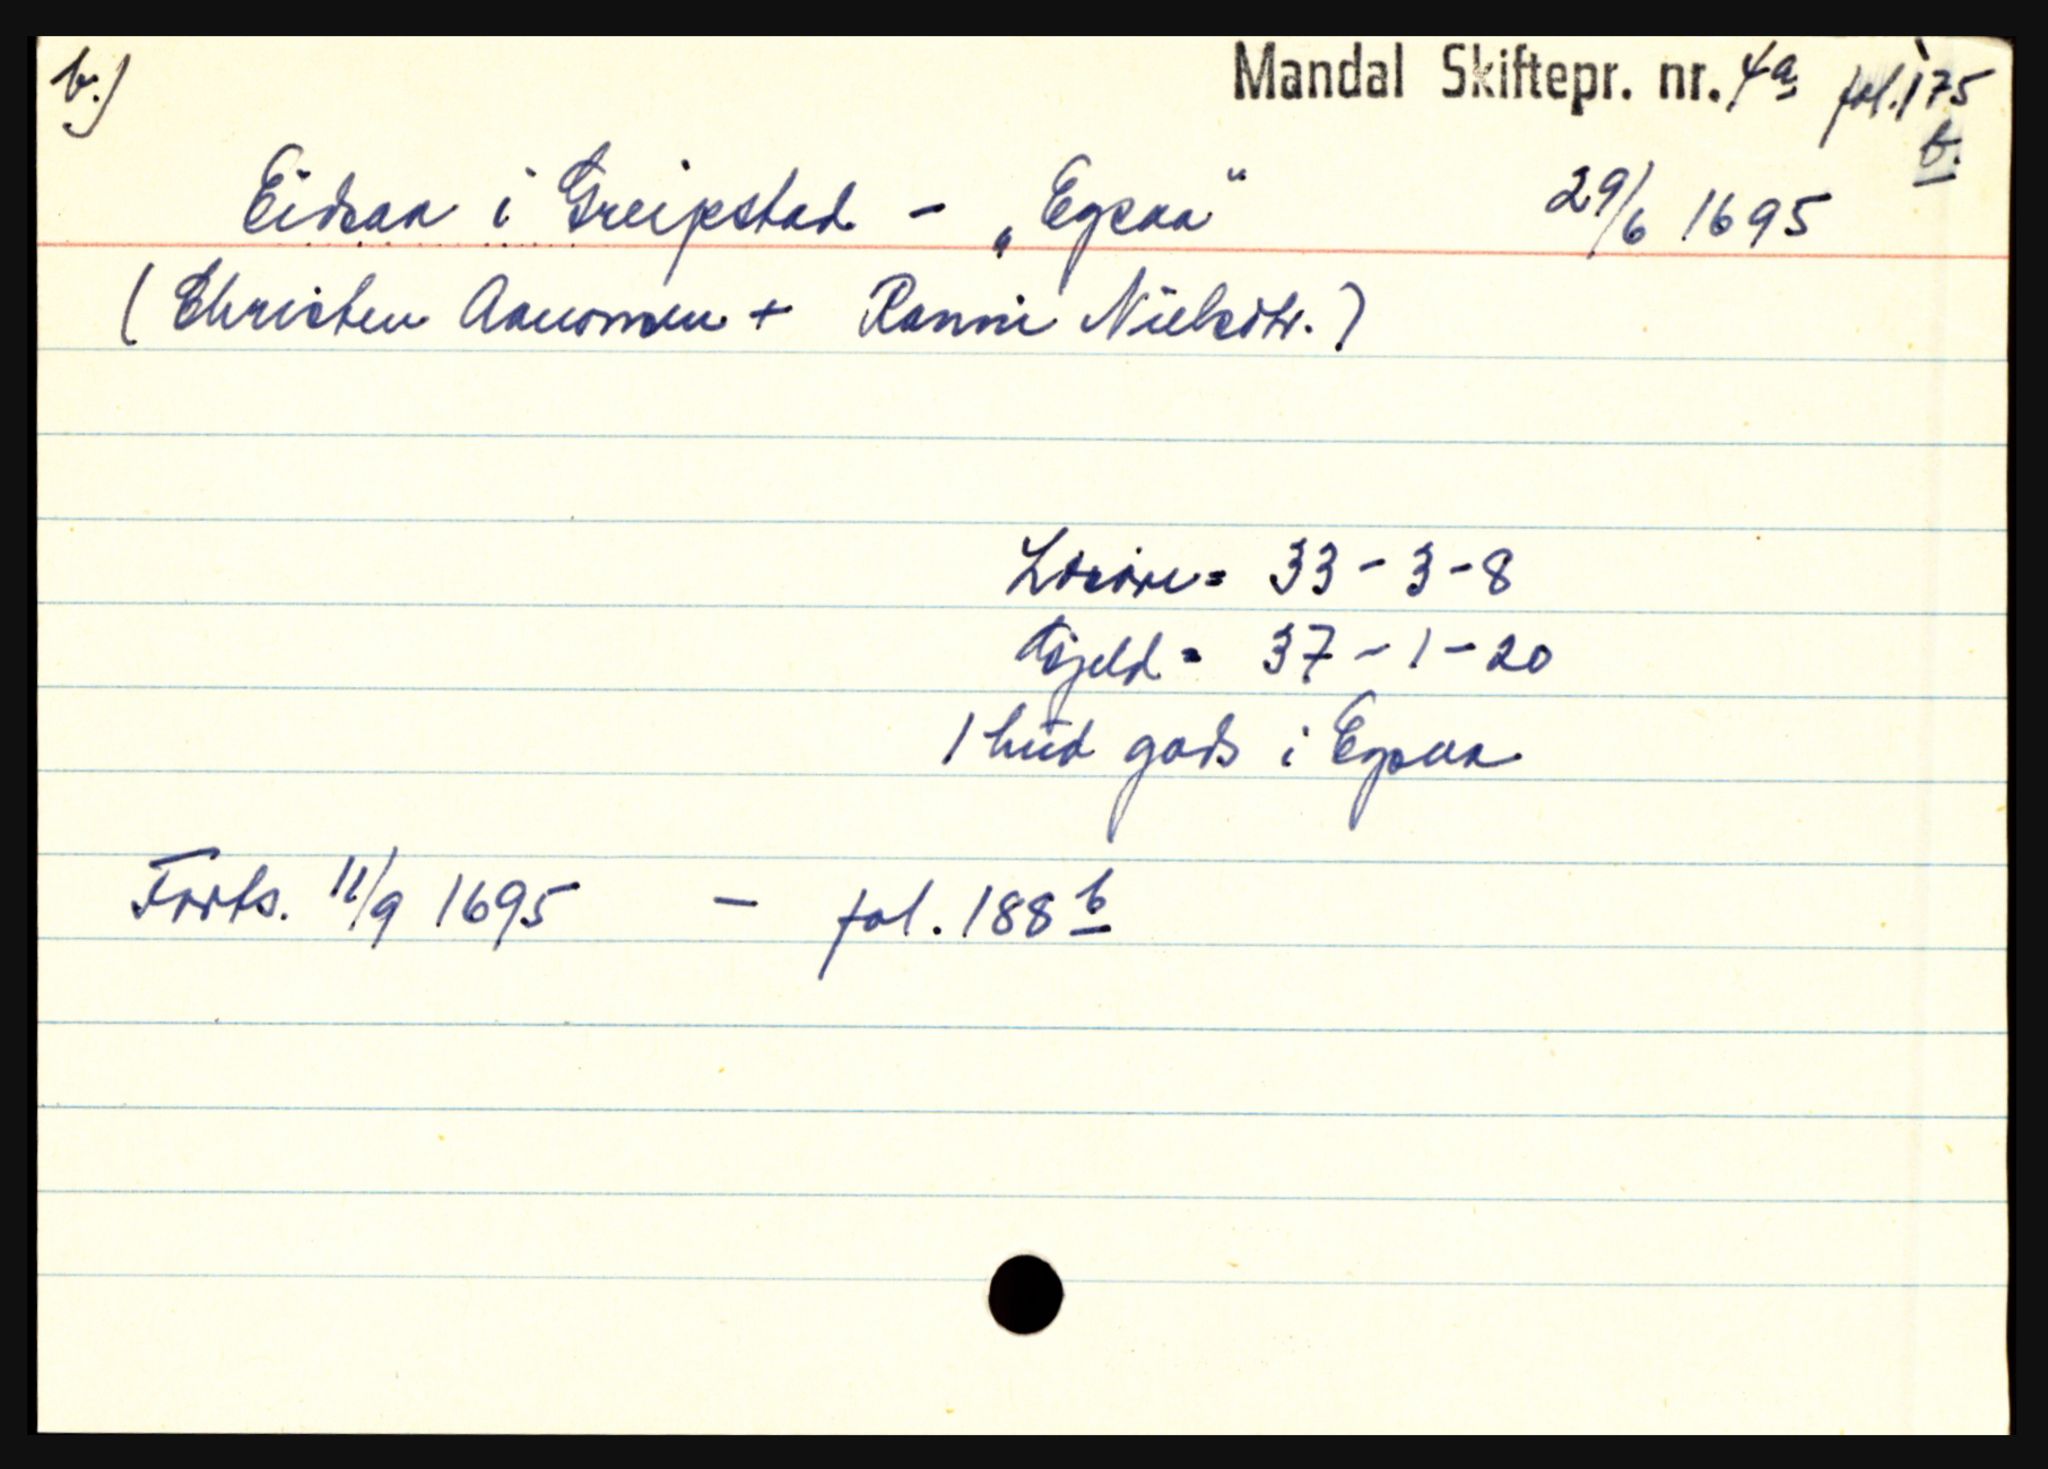 b.)
Mandal Skiftepr. nr. 4a fol. 175
b.
Eidsaa i Greipstad - „Egsaa“ 29/6 1695
(Christen Aanonsen + Ranni Nielsdtr.)
Løsøre = 33-3-8
Gjeld = 37-1-20
1 hud gods i Egsaa
Forts. 11/9 1695 - fol. 188 b